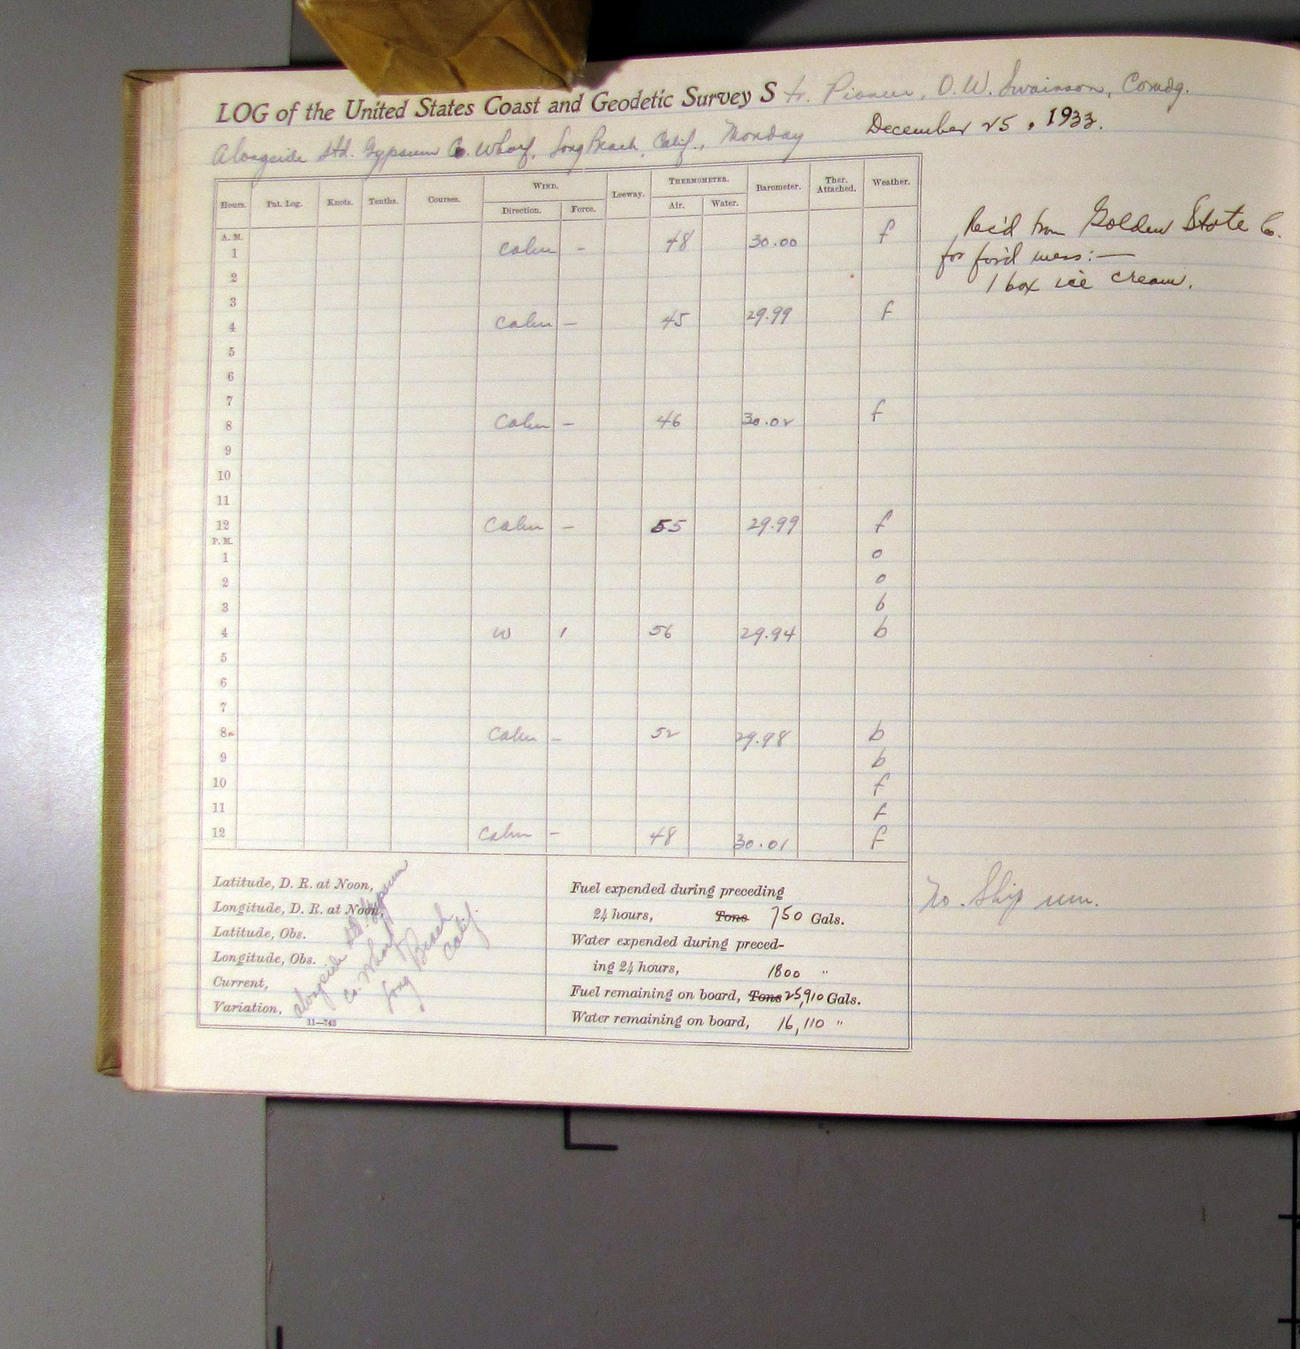 LOG of the United States Coast and Geodetic Survey Str. Pioneer, O.W. Swainson, Comdg.
Alongside Std. Gypsum Co. Wharf, Long Beach, Calif., Monday December 25, 1933.
Hours. Pat. Log. Knots. Tenths. Courses. WIND. Leeway. THERMOMETER. Barometer. Ther. Attached. Weather.
Direction. Force. Air. Water.
A. M.
1 calm - 48 30.00 f
2
3
4 calm - 45 29.99 f
5
6
7
8 calm - 46 30.02 f
9
10
11
12 calm - 55 29.99 f
P. M.
1 o
2 o
3 b
4 W 1 56 29.94 b
5
6
7
8 calm - 52 29.98 b
9 b
10 f
11 f
12 calm - 48 30.01 f
Rec'd from Golden State Co.
for for'd mess:—
1 box ice cream.
Latitude, D. R. at Noon,
Longitude, D. R. at Noon,
Latitude, Obs.
Longitude, Obs.
Current,
Variation,
11—743
alongside Std. Gypsum
Co. Wharf
Long Beach
Calif.
Fuel expended during preceding
24 hours, Tons 750 Gals.
Water expended during preced-
ing 24 hours, 1800 "
Fuel remaining on board, Tons 25,910 Gals.
Water remaining on board, 16,110 "
No. Ship